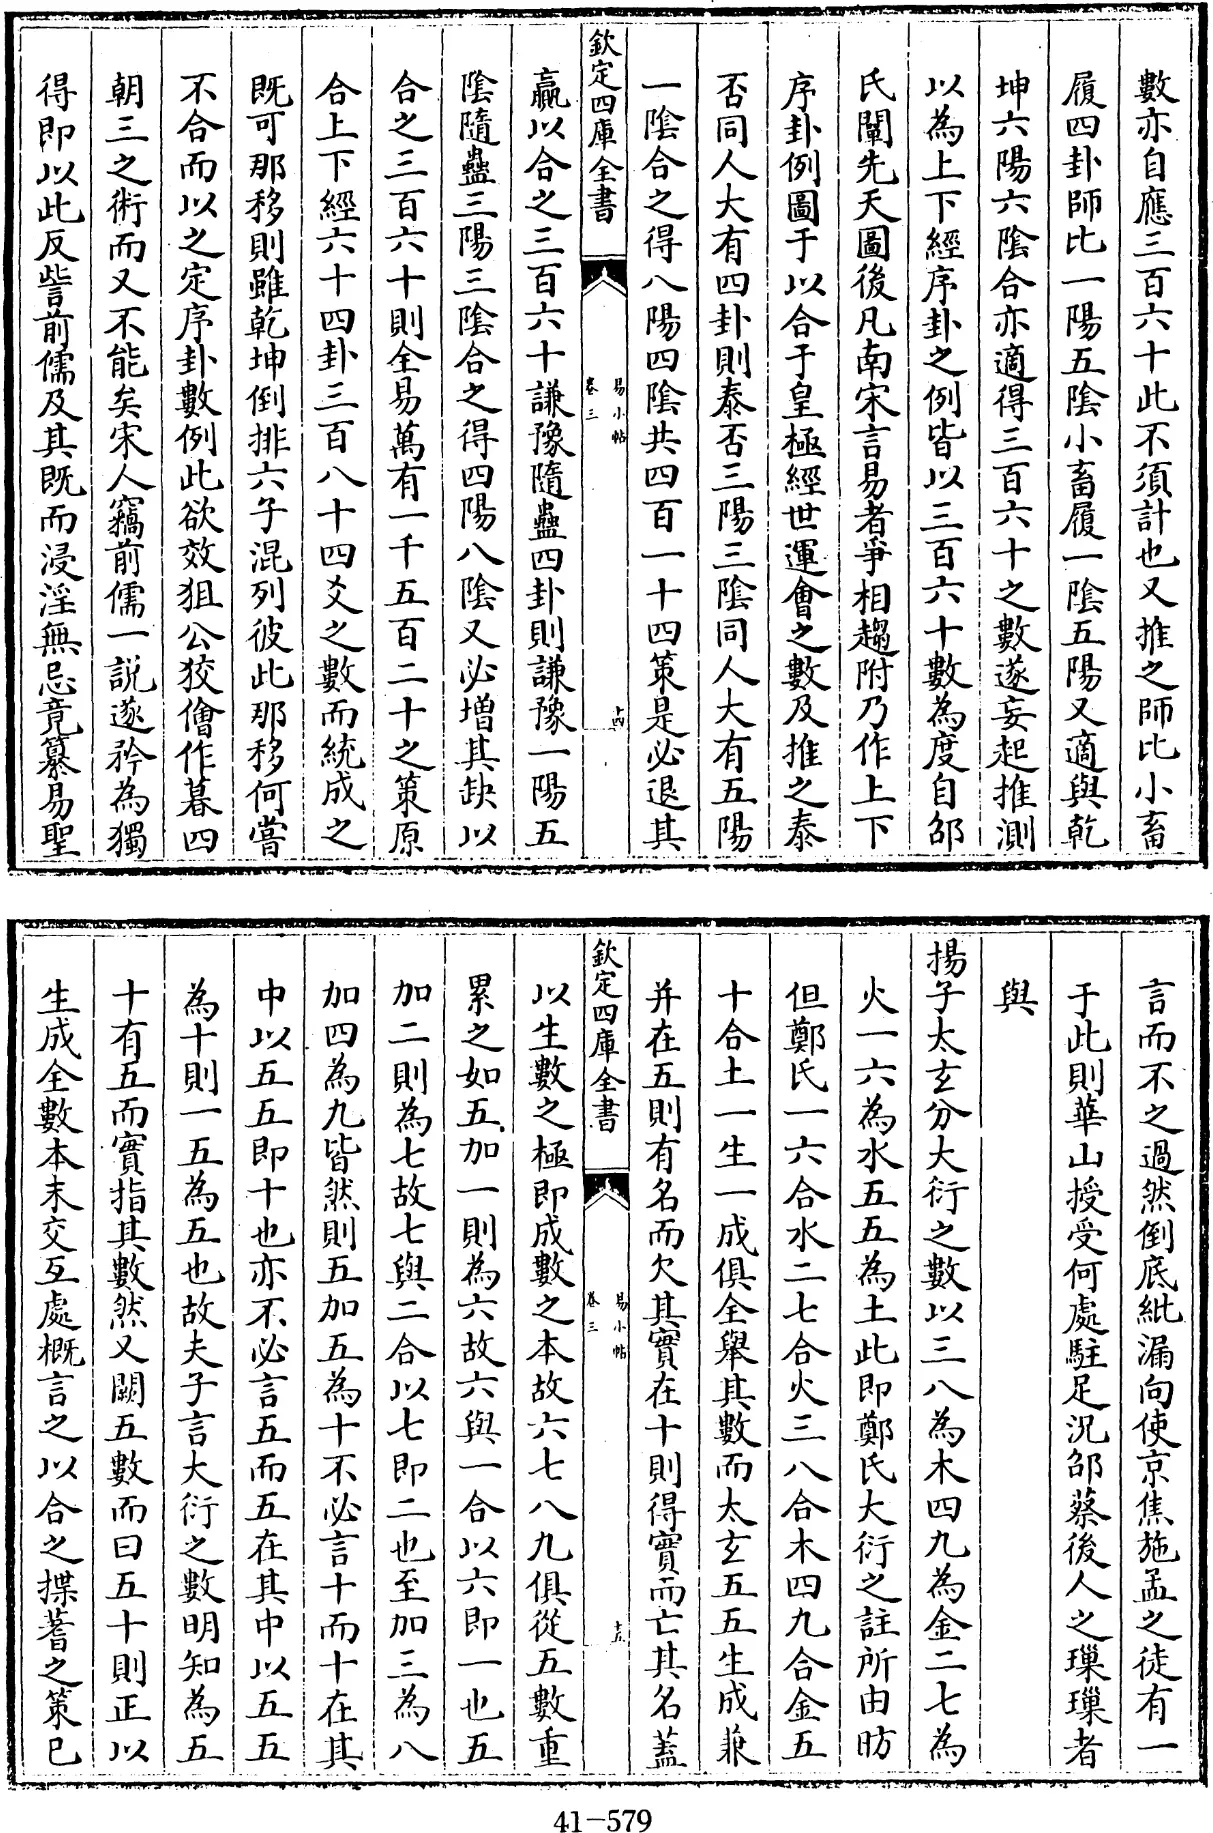 數亦自應三百六十此不須計也又推之師比小畜
履四卦師比一陽五陰小畜履一陰五陽又適與乾
坤六陽六陰合亦適得三百六十之數遂妄起推測
以為上下經序卦之例皆以三百六十數為度自邵
氏闡先天圖後凡南宋言易者爭相趨附乃作上下
序卦例圖于以合于皇極經世運會之數及推之泰
否同人大有四卦則泰否三陽三陰同人大有五陽
一陰合之得八陽四陰共四百一十四策是必退其
欽定四庫全書
易小帖
卷三
十四
贏以合之三百六十謙豫隨蠱四卦則謙豫一陽五
陰隨蠱三陽三陰合之得四陽八陰又必增其缺以
合之三百六十則全易萬有一千五百二十之策原
合上下經六十四卦三百八十四爻之數而統成之
既可那移則雖乾坤倒排六子混列彼此那移何嘗
不合而以之定序卦數例此欲效狙公狡儈作暮四
朝三之術而又不能矣宋人竊前儒一說遂矜為獨
得即以此反訾前儒及其既而浸淫無忌竟纂易聖
言而不之過然倒底紕漏向使京焦施孟之徒有一
于此則華山授受何處駐足況邵蔡後人之璅璅者
與
揚子太玄分大衍之數以三八為木四九為金二七為
火一六為水五五為土此即鄭氏大衍之註所由昉
但鄭氏一六合水二七合火三八合木四九合金五
十合土一生一成俱全舉其數而太玄五五生成兼
并在五則有名而欠其實在十則得實而亡其名蓋
欽定四庫全書
易小帖
卷三
十五
以生數之極即成數之本故六七八九俱從五數重
累之如五加一則為六故六與一合以六即一也五
加二則為七故七與二合以七即二也至加三為八
加四為九皆然則五加五為十不必言十而十在其
中以五五即十也亦不必言五而五在其中以五五
為十則一五為五也故夫子言大衍之數明知為五
十有五而實指其數然又闕五數而曰五十則正以
生成全數本末交互處概言之以合之揲蓍之策已
41-579